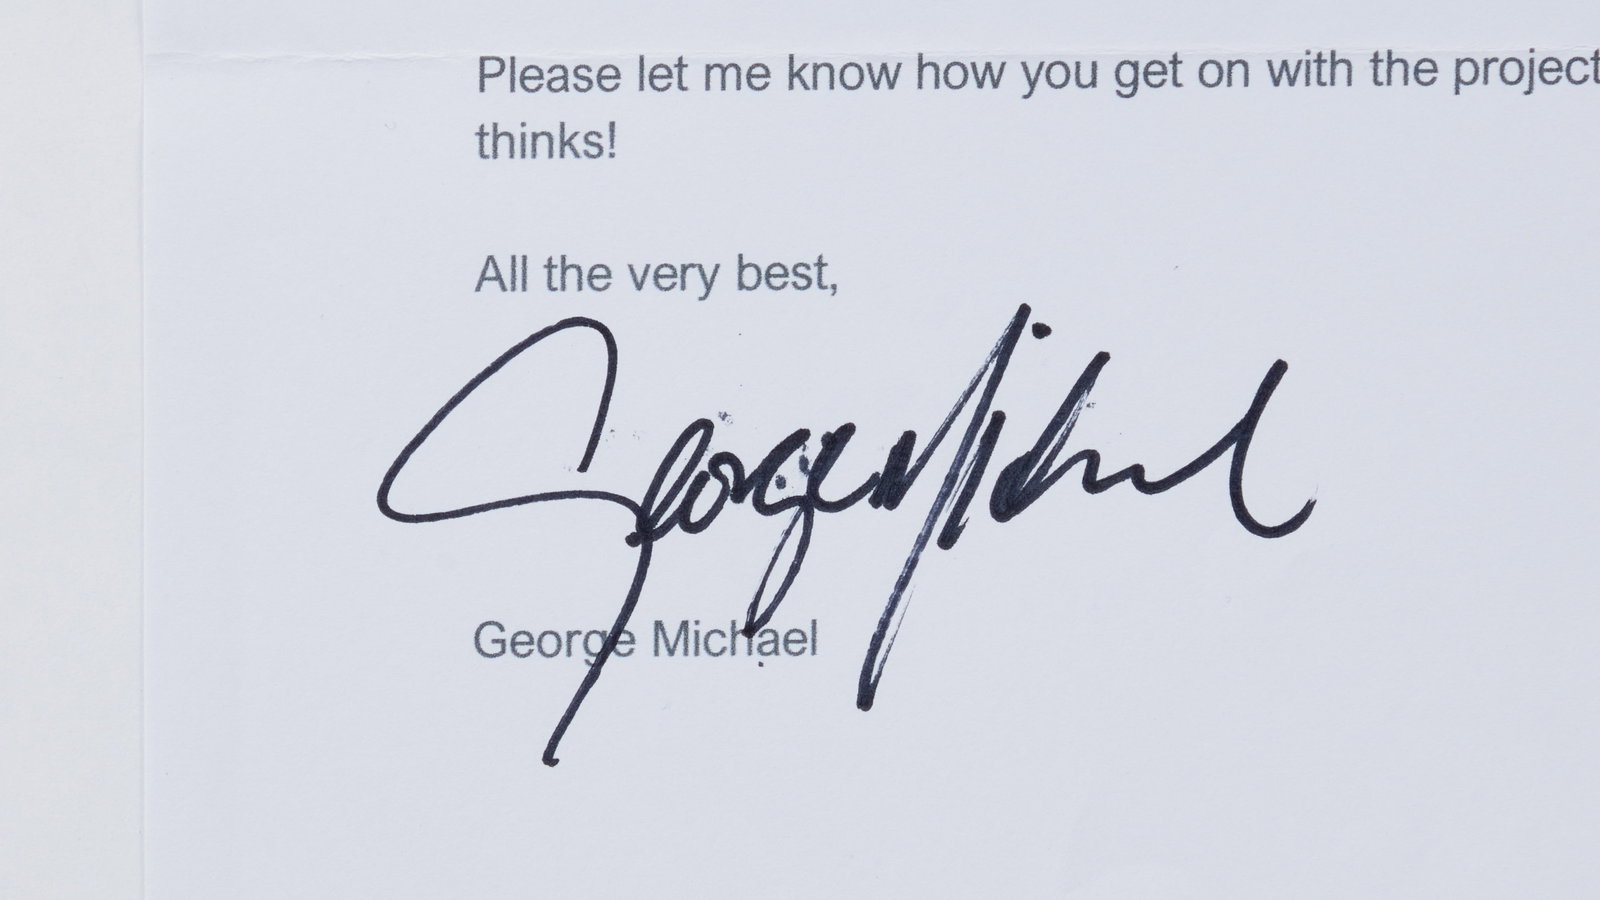 Please let me know how you get on with the project
thinks!
All the very best,
George Michael
George Michael